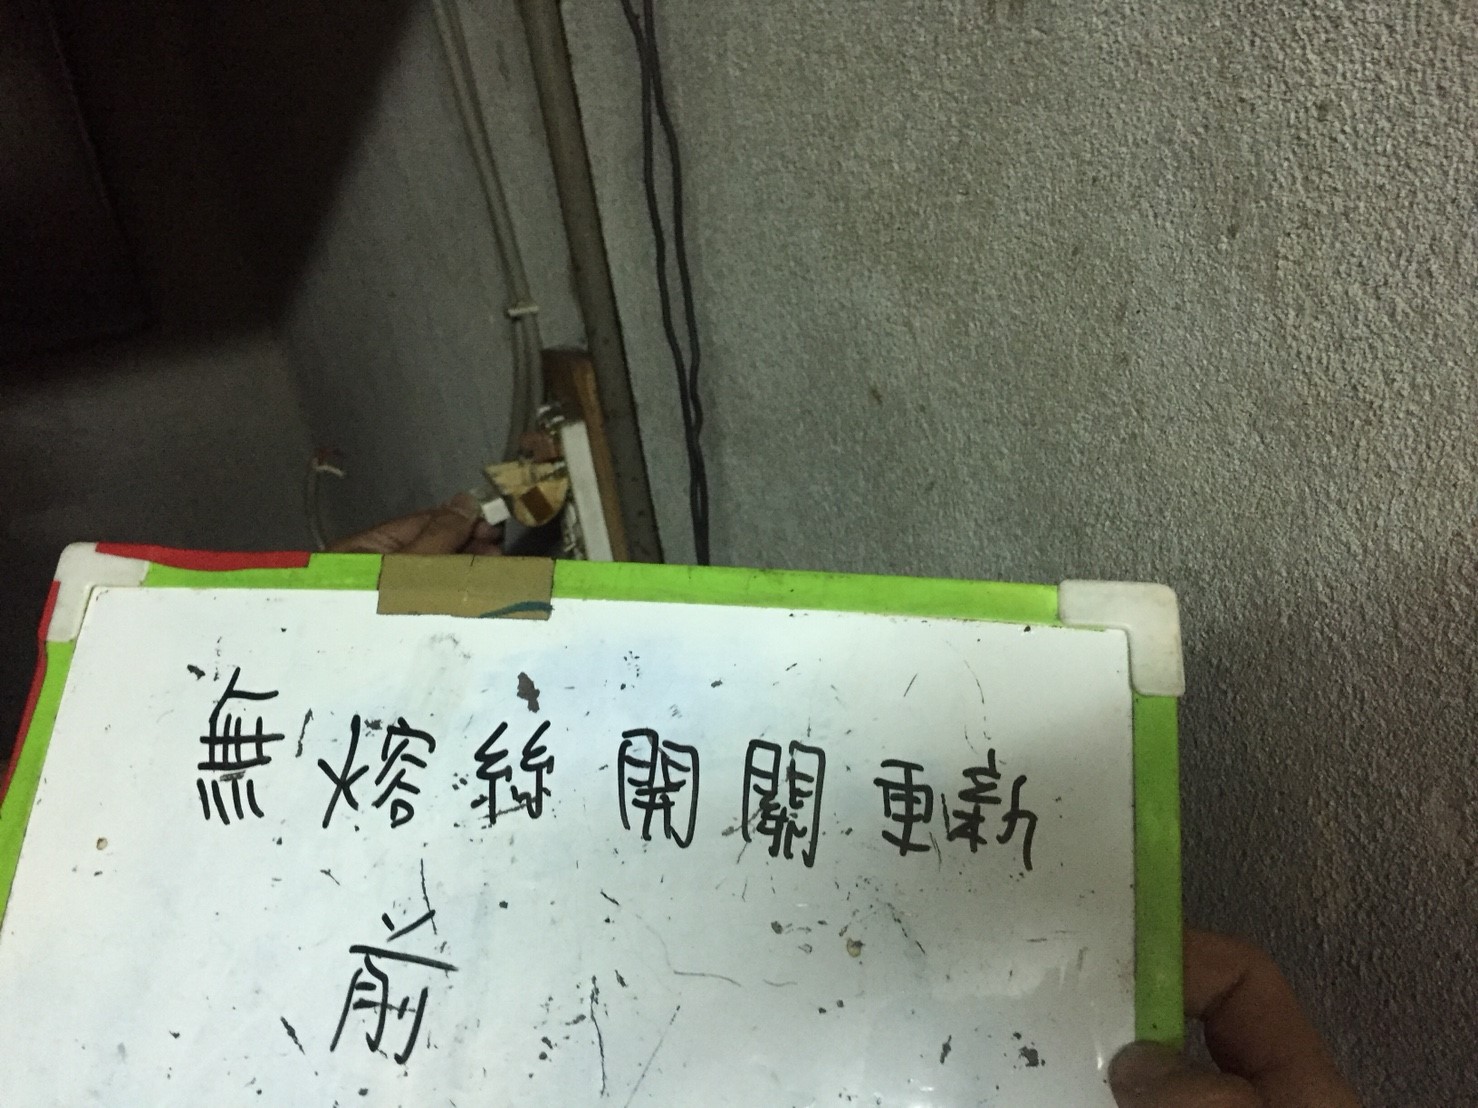 無熔絲開關更新
前